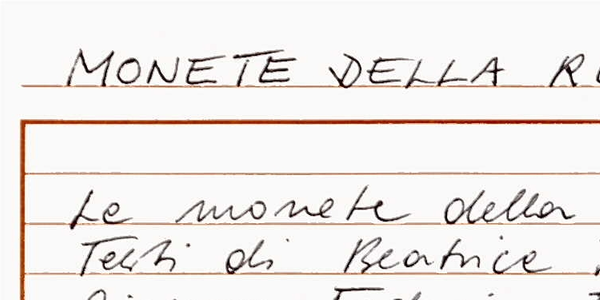 MONETE DELLA
Le monete della
Testi di Beatrice